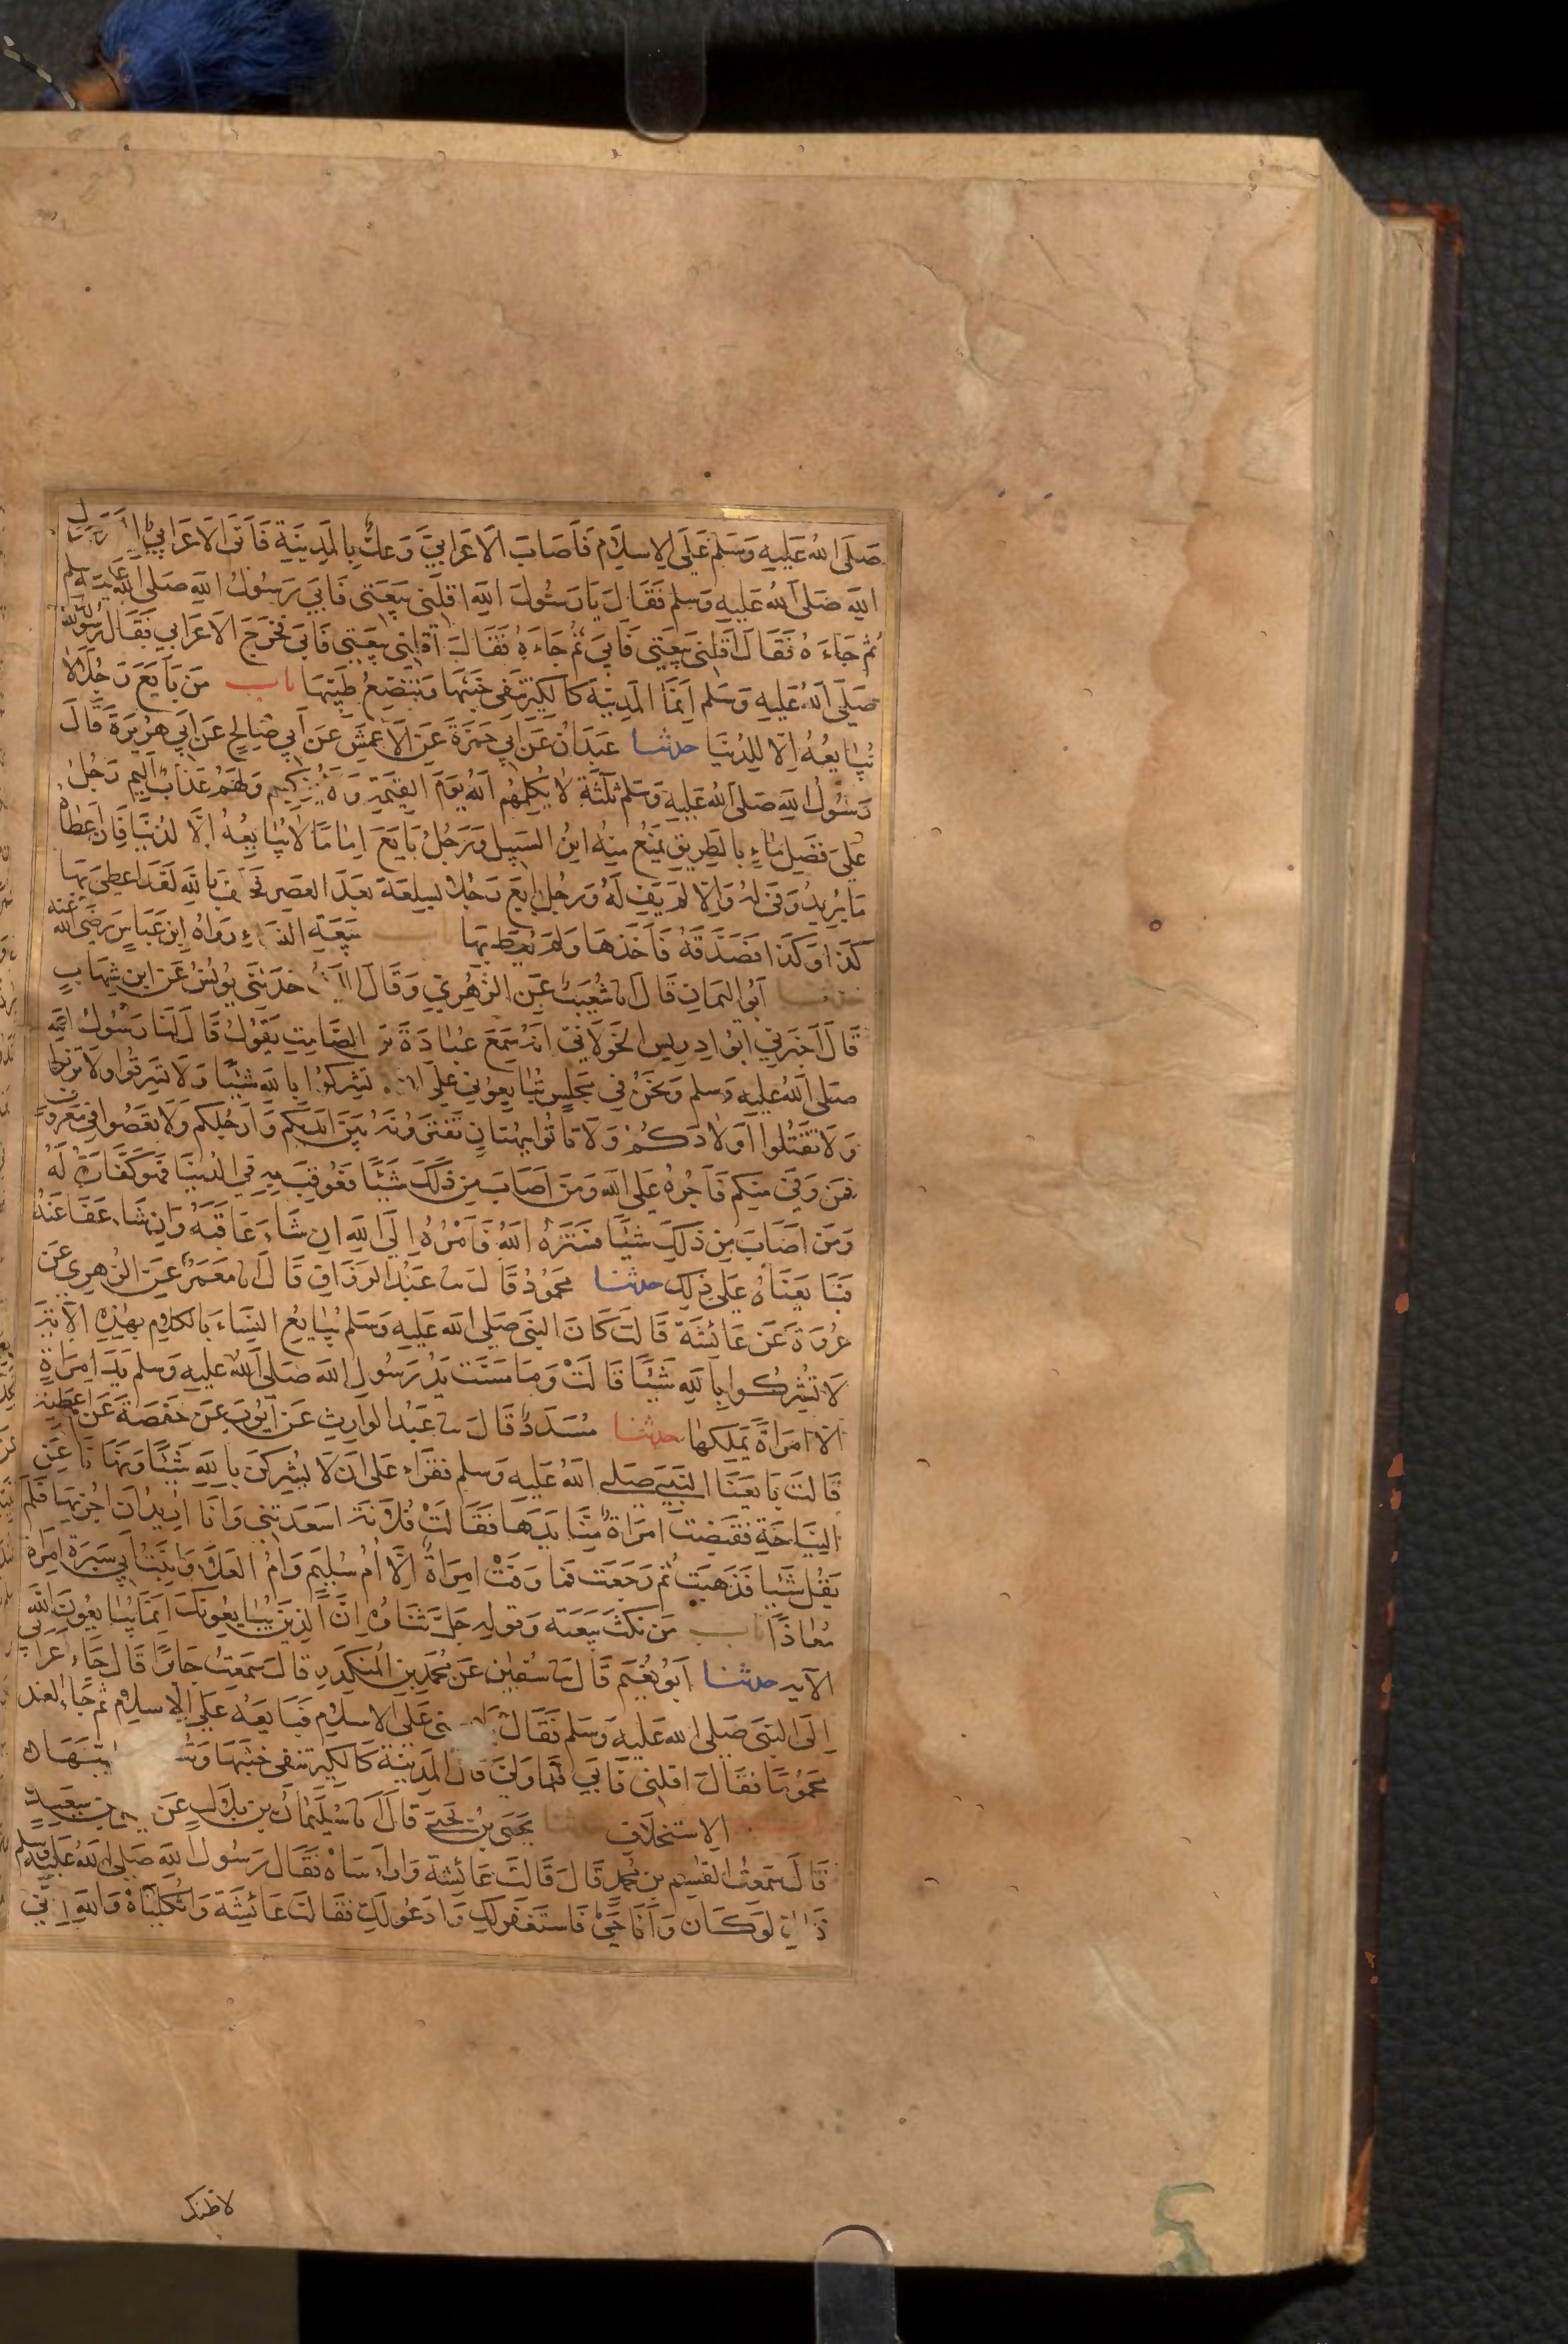 صَلَى اللهُ عَلَيهِ وَسَلم عَلَى الاِسلَامِ فَاَصَابَ الاَعرَابِيَّ وَعكٌ بِالمَدِينَةِ فَاَتَى الاَعرَابِيُّ اِلَى رَسُولِ
اللهِ صَلى اللهُ عَلَيهِ وَسلم فَقَالَ يَا رَسُولَ اللهِ اَقِلنِي بَيعَتِي فَاَبَى رَسُولُ اللهِ صَلى اللهُ عَلَيهِ وسلم
ثُم جَاءَهُ فَقَالَ اَقِلنِي بَيعَتِي فَاَبَى ثُم جَاءَهُ فَقَالَ اَقِلنِي بَيعَتِي فَاَبَى فَخَرَجَ الاَعرَابِي فَقَالَ رَسُولُ اللهِ
صَلَى اللهُ عَلَيهِ وَسَلم اِنمَا المَدِينَة كَالكِيرِ تَنفِي خَبَثَهَا وَيَنصَعُ طِيبُهَا باب مَن بَايَعَ رَجُلًا لَا
يُبَايِعُهُ اِلّا لِلدُنيَا حدثنا عَبدَانُ عَن اَبِي حَمزَةَ عَنِ الاَعمَشِ عَن اَبِي صَالِحٍ عَن اَبِي هُرَيرَةَ قَالَ
رَسُولُ اللهِ صَلَى اللهُ عَلَيهِ وَسَلم ثَلثَة لَا يُكَلِمُهُم اللهُ يَومَ القِيمَةِ وَلَا يُزَكِيهِم وَلَهُم عَذَابٌ اَلِيم رَجُلٌ
عَلَى فَضلِ مَاءٍ بِالطَرِيقِ يَمنَعُ مِنهُ ابنُ السَبِيلِ وَرَجُلٌ بَايَعَ اِمَامًا لَا يُبَايِعُهُ اِلَّا لِدُنيَا فَاِن اَعطَاهُ
مَا يُرِيدُ وَفَى لَهُ وَاِلّا لَم يَفِ لَهُ وَرَجُل بَايَعَ رَجُلًا بِسِلعَة بَعدَ العَصرِ فَحَلَفَ بِاللهِ لَقَد اُعطِيَ بِهَا
كَذَا وَكَذَا فَصَدَقَهُ فَاَخَذَهَا وَلَم يُعطَ بِهَا بَيعَةِ النِسَاءِ رَوَاهُ ابن عَبَاسٍ رَضِيَ الله عنه
حدثنا اَبُو اليَمَانِ قَالَ انا شُعَيبٌ عَنِ الزُهرِيِّ وَقَالَ اللَيثُ حَدَثَنِي يُونُسُ عَنِ ابنِ شِهَابٍ
قَالَ اَخبَرَنِي اَبُو اِدرِيسَ الخَولَانِيُّ اَنَهُ سَمِعَ عُبَادَةَ بنَ الصَامِتِ يَقُولُ قَالَ لَنَا رَسُولُ اللهِ
صَلى اللهُ عَلَيهِ وَسلم وَنَحنُ فِي مَجلِسٍ تُبَايِعُونِي عَلَى اَن لَا تُشرِكُوا بِاللهِ شَيئًا وَلَا تَسرِقُوا وَلَا تَزنُوا
وَلَا تَقتُلُوا اَولَادَكُم وَلَا تَاتُوا بِبُهتَانٍ تَفتَرُونَهُ بَينَ اَيدِيكُم وَاَرجُلِكُم وَلَا تَعصُوا فِي مَعرُوفٍ
فَمَن وَفَى مِنكُم فَاَجرُهُ عَلَى اللهِ وَمَن اَصَابَ مِن ذَلِكَ شَيئًا فَعُوقِبَ بِهِ فِي الدُنيَا فَهُوَ كَفَارَةٌ لَهُ
وَمَن اَصَابَ مِن ذَلِكَ شَيئًا فَسَتَرَهُ اللهُ فَاَمرُهُ اِلَى اللهِ اِن شَاءَ عَاقَبَهُ وَاِن شَاءَ عَفَا عَنهُ
فَبَايَعنَاهُ عَلَى ذَلِكَ حدثنا مَحمُودٌ قَالَ ثنا عَبدُ الرَزَاقِ قَالَ انا مَعمَرٌ عَنِ الزُهرِي عَن
عُروَةَ عَن عَائشَةَ قَالَت كَانَ النَبِي صَلى الله عَلَيهِ وَسَلم يُبَايِعُ النِسَاءَ بِالكَلَامِ بِهَذِهِ الآيَةِ
لَا تُشرِكُوا بِاللهِ شَيئًا قَالَت وَمَا مَسَت يَدُ رَسُولِ اللهِ صَلَى اللهُ عَلَيهِ وَسلم يَدَ امرَاَةٍ
اِلّا امرَاَةً يَملِكُهَا حدثنا مُسَدَدٌ قَالَ ثنا عَبدُ الوَارِثِ عَن اَيُوبَ عَن حَفصَةَ عَن اُم عَطِيَة
قَالَت بَايَعنَا النَبِي صَلى اللهُ عَلَيهِ وَسلم فَقَرَاَ عَلَى اَن لَا يُشرِكنَ بِاللهِ شَيئًا وَنَهَانَا عَنِ
النِيَاحَةِ فَقَبَضَت امرَاَةٌ مِنَّا يَدَهَا فَقَالَت فُلَانَة اَسعَدَتنِي وَاَنَا اُرِيدُ اَن اَجزِيَهَا فَلَم
يَقُل شَيئًا فَذَهَبَت ثُم رَجَعَت فَمَا وَفَت امرَاَةٌ اِلَّا اُمُ سُلَيمٍ وَاُمُ العَلَاءِ وَابنَة اَبِي سَبرَةَ امرَاَة
مُعَاذٍ باب مَن نَكَثَ بَيعَته وَقَولِهِ جَلَّ ثَنَاؤُهُ اِنَّ الَذِينَ يُبَايِعُونَكَ اِنَمَا يُبَايِعُونَ اللهَ
الآية حدثنا اَبُو نُعَيم قَالَ ثنا سُفيَن عَن مُحَمَدِ بنِ المُنكَدِرِ قَالَ سَمِعتُ جَابِرًا قَالَ جَاءَ اَعرَابِي
اِلَى النَبِي صَلى الله عَلَيهِ وَسَلم فَقَالَ بَايِعنِي عَلَى الاِسلَامِ فَبَايَعَهُ عَلَى الاِسلَامِ ثُم جَاءَ الغَد
مَحمُومًا فَقَالَ اَقِلنِي فَاَبَى فَلَمَا وَلَى قَالَ المَدِينَة كَالكِيرِ تَنفِي خَبَثَهَا
الاِستِخلَافِ حدثنا يَحيَى بنُ يَحيَى قَالَ انا سُلَيمَانُ بن بِلَالٍ عَن يَحيَى بن سَعِيدٍ
قَالَ سَمِعتُ القسِم بن مُحَمد قَالَ قَالَت عَائِشَة وَارَاسَاه فَقَالَ رَسُولُ اللهِ صَلى اللهُ عَلَيهِ وسلم
ذَاكِ لَو كَانَ وَاَنَا حَيٌّ فَاَستَغفِر لَكِ وَاَدعُو لَكِ فَقَالَت عَائِشَة وَاثُكلِيَاه وَاللهِ اِنِي
لاظنك